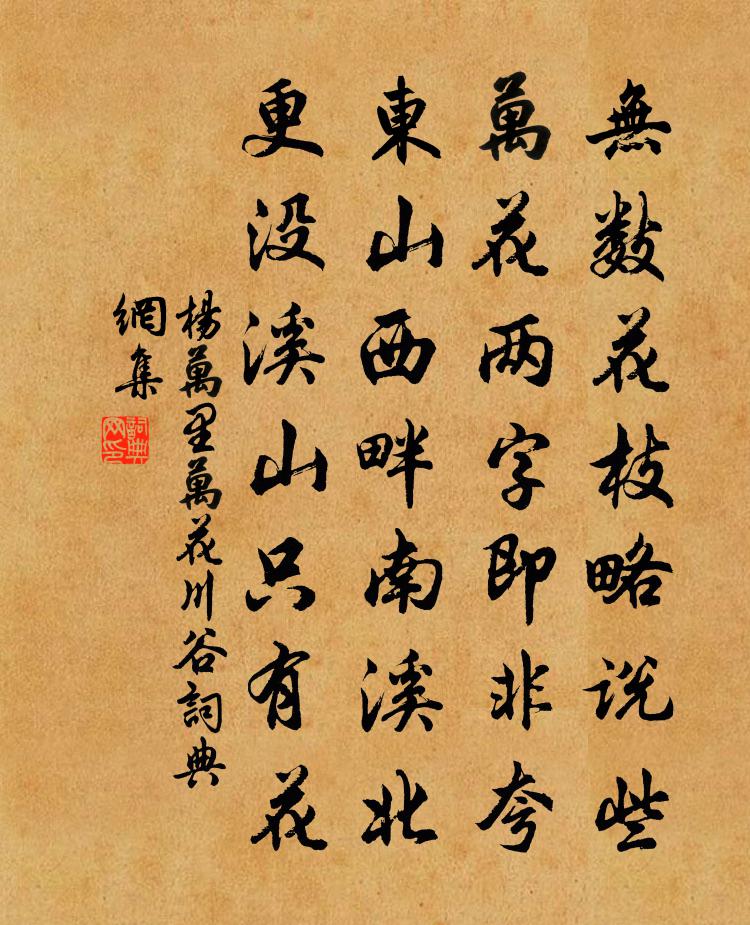 無数花枝略说些
萬花两字即非夸
東山西畔南溪北
更没溪山只有花
楊萬里萬花川谷詞典
網集
詞典
网印